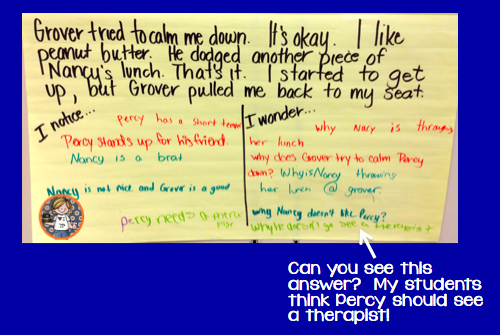 Grover tried to calm me down. It's okay. I like
peanut butter. He dodged another piece of
Nancy's lunch. That's it. I started to get
up, but Grover pulled me back to my seat.
I notice...
percy has a short temper
Percy stands up for his friend
Nancy is a brat
Nancy is not nice and Grover is a good
percy needs a thera
pist
I wonder...
why Nacy is throwing
her lunch
why does Grover try to calm Percy
down? Why is Nancy throwing
her lunch @ grover.
why Nancy doesn't like Percy?
why he doesn't go see a therapist
Can you see this
answer? My students
think Percy should see
a therapist!